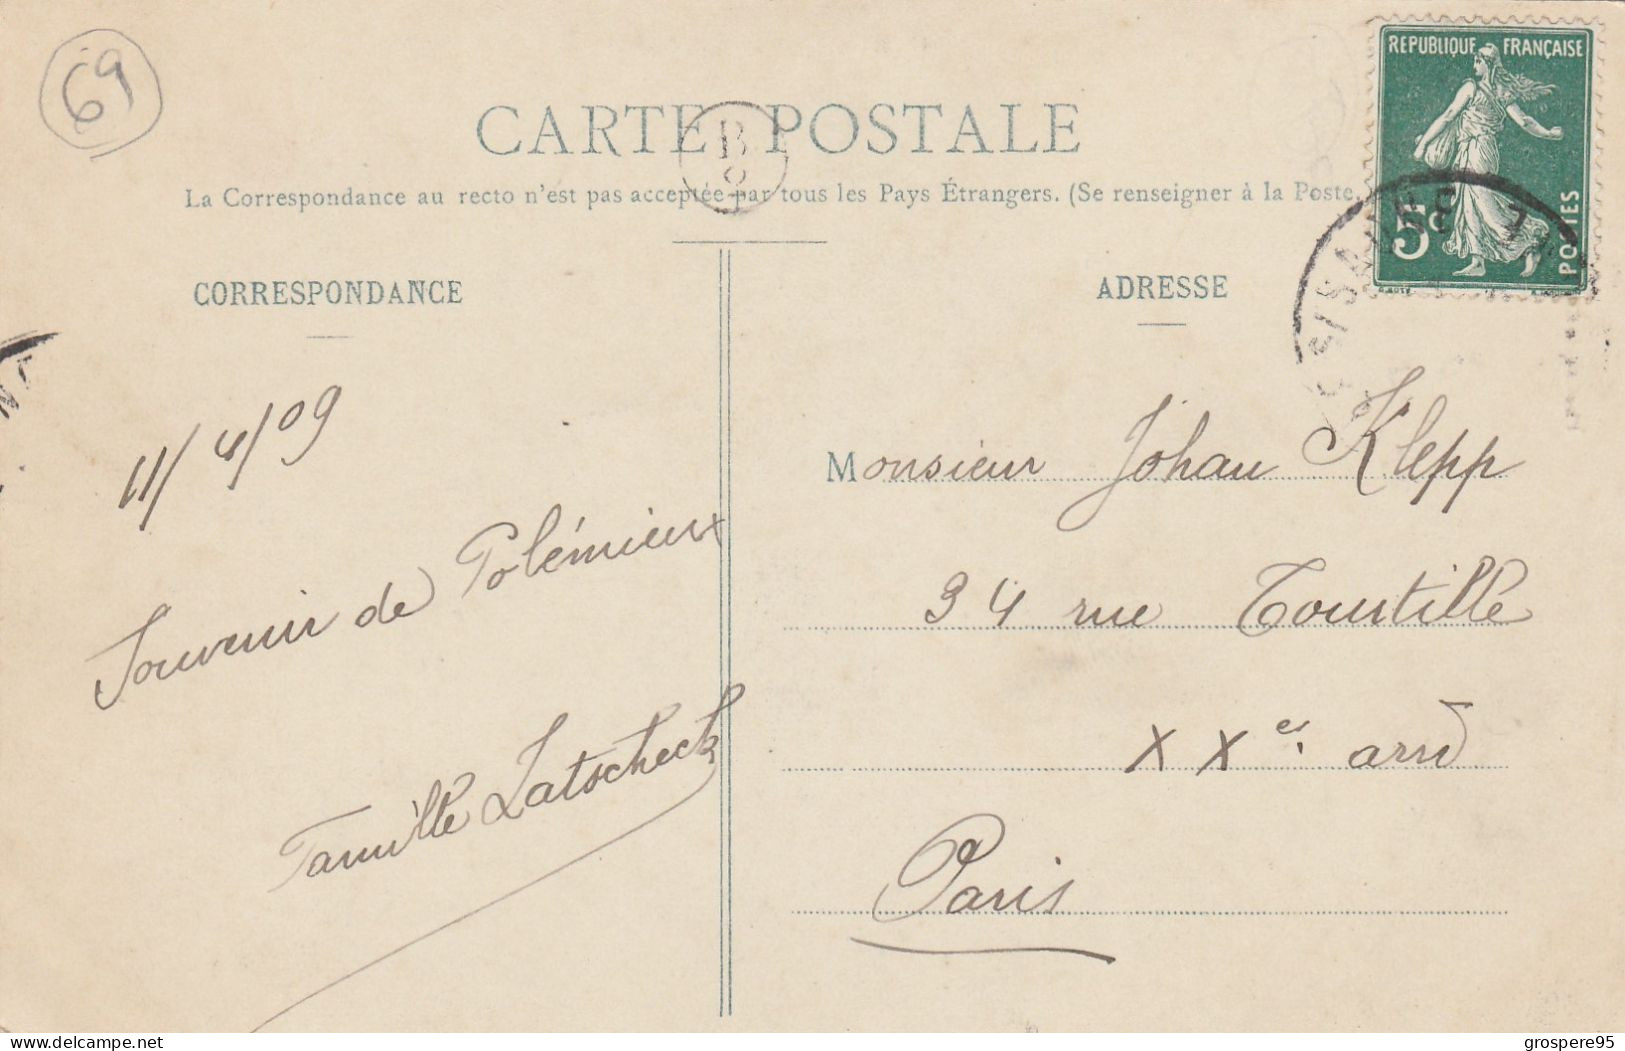 69
REPUBLIQUE FRANÇAISE
5c
POSTES
CARTE POSTALE
B
La Correspondance au recto n'est pas acceptée par tous les Pays Étrangers. (Se renseigner à la Poste.
CORRESPONDANCE
ADRESSE
11/4/09
Souvenir de Polémieux
Famille Latscheck
Monsieur Johau Klepp
34 rue Tourtille
XXe. arrd
Paris
delcampe.net
grospere95